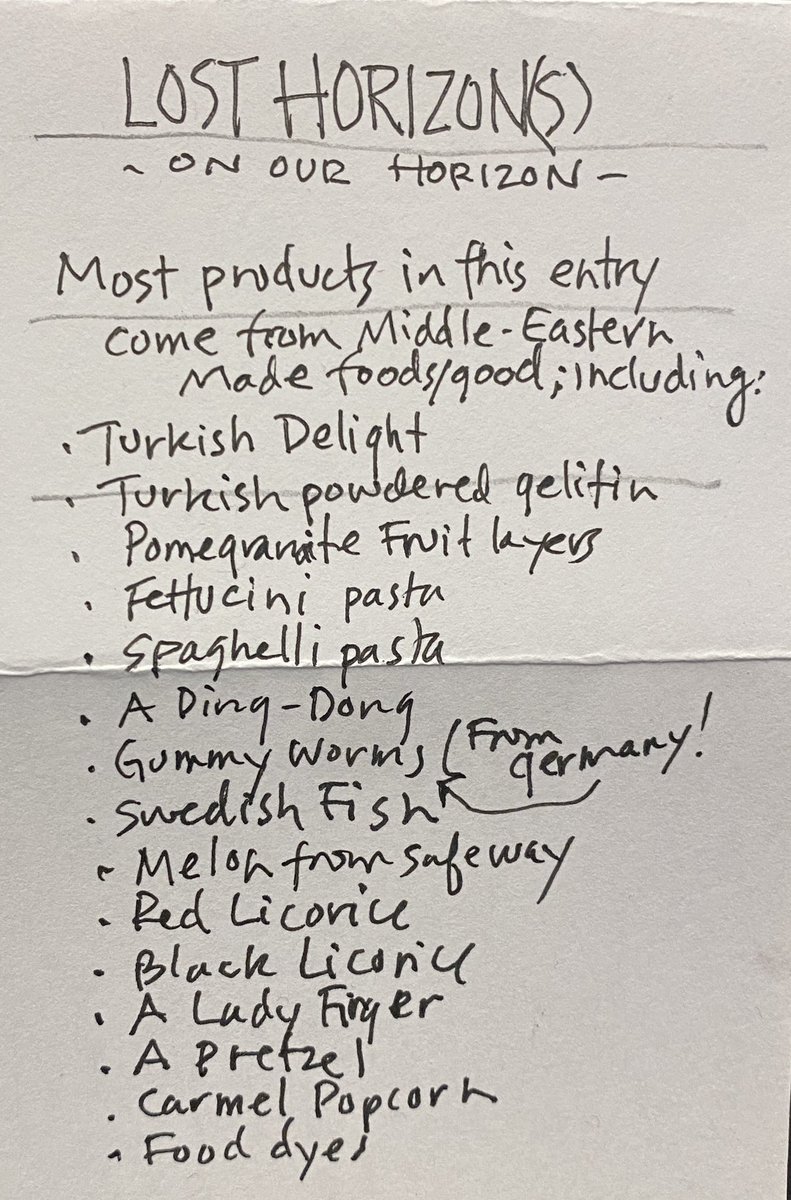 LOST HORIZON(S)
~ ON OUR HORIZON -
Most products in this entry
come from Middle-Eastern
Made foods/good; including:
· Turkish Delight
· Turkish powdered gelitin
· Pomegranaite Fruit layers
· Fettucini pasta
· Spaghelli pasta
· A Ding-Dong
· Gummy Worms (From germany!
· Swedish Fish
- Melon from safeway
· Red Licorice
· Black Licorice
· A Lady Finger
· A Pretzel
· Carmel Popcorn
· Food dyes